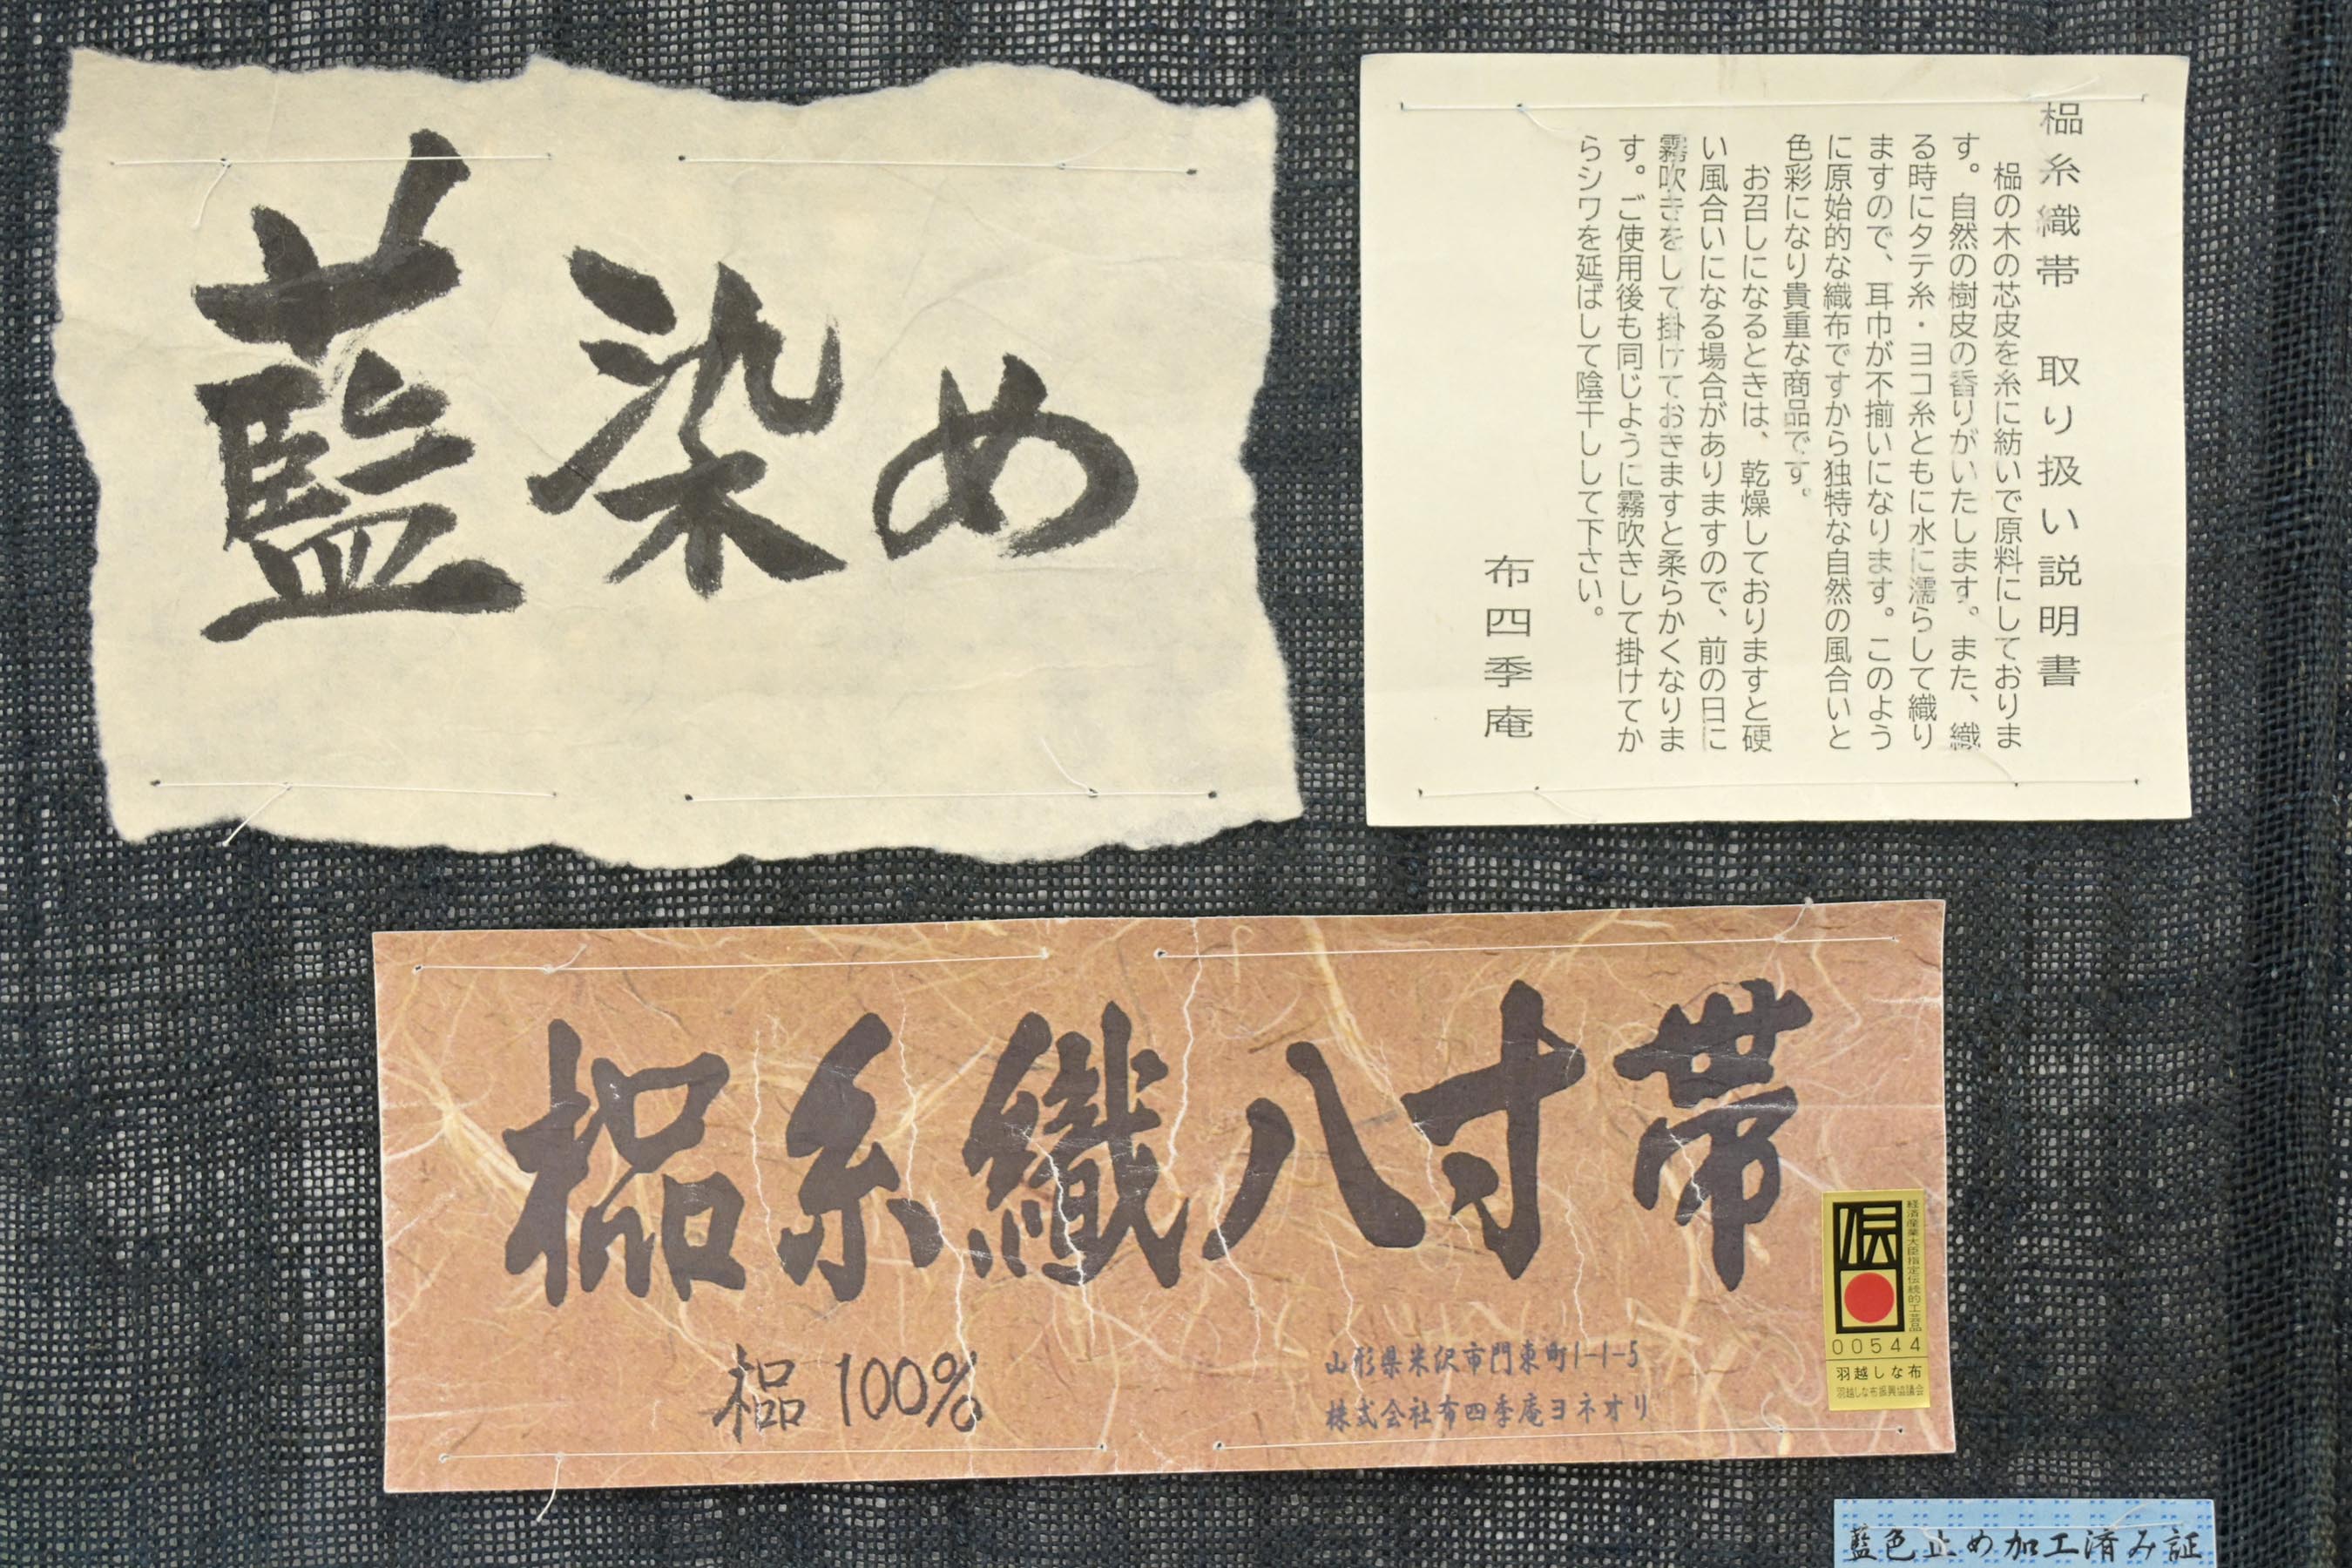 藍染め
榀糸織帯 取り扱い説明書
榀の木の芯皮を糸に紡いで原料にしておりま
す。自然の樹皮の香りがいたします。また、織
る時にタテ糸・ヨコ糸ともに水に濡らして織り
ますので、耳巾が不揃いになります。このよう
に原始的な織布ですから独特な自然の風合いと
色彩になり貴重な商品です。
お召しになるときは、乾燥しておりますと硬
い風合いになる場合がありますので、前の日に
霧吹きをして掛けておきますと柔らかくなりま
す。ご使用後も同じように霧吹きして掛けてか
らシワを延ばして陰干しして下さい。
布四季庵
榀糸織八寸帯
榀 100%
山形県米沢市門東町1-1-5
株式会社布四季庵ヨネオリ
伝
経済産業大臣指定伝統的工芸品
00544
羽越しな布
羽越しな布振興協議会
藍色止め加工済み証